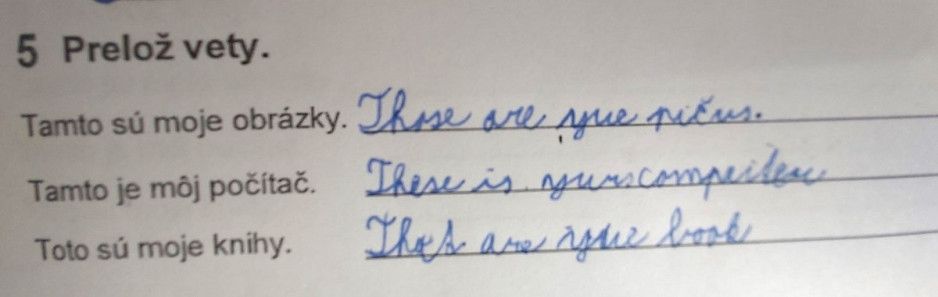 5 Prelož vety.
Tamto sú moje obrázky. Those are yue pičus.
Tamto je môj počítač. These is yurs compeiteu
Toto sú moje knihy. That are yue book